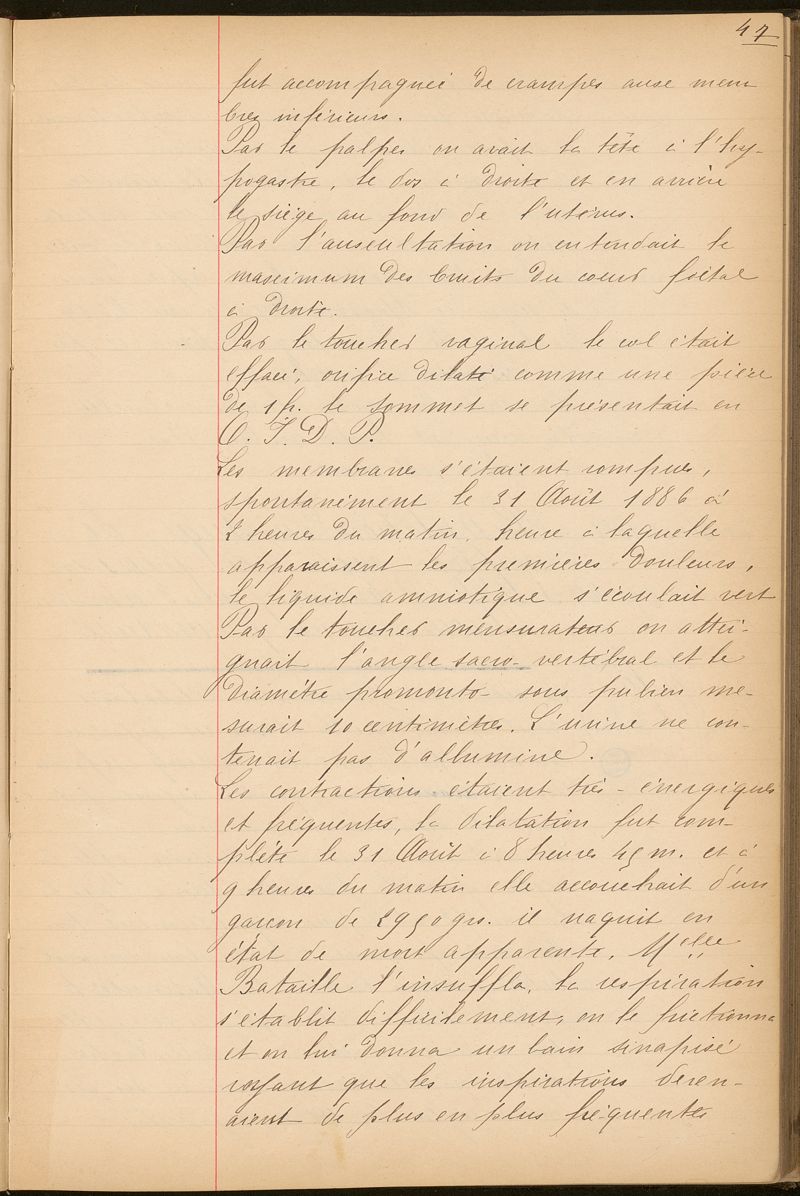 47
fut accompagnée de crampes aux mem
bres inférieurs.
Par le palper on avait la tête à l'hy-
pogastre, le dos à droite et en arrière
le siège au fond de l'utérus.
Par l'auscultation on entendait le
maximum des bruits du cœur fœtal
à droite.
Par le toucher vaginal le col était
effacé, orifice dilaté comme une pièce
de 1 fr. le sommet se présentait en
O. I. D. P.
Les membranes s'étaient rompues,
spontanément le 31 Août 1886 à
2 heures du matin, heure à laquelle
apparaissent les premières douleurs,
le liquide amniotique s'écoulait vert
Par le toucher mensurateur on attei-
gnait l'angle sacro-vertébral et le
diamètre promonto-sous pubien me-
surait 10 centimètres. L'urine ne con-
tenait pas d'allumine.
Les contractions étaient très-énergiques
et fréquentes, la dilatation fut com-
plète le 31 Août à 8 heures 45 m. et à
9 heures du matin elle accouchait d'un
garçon de 2950 grs. il naquit en
état de mort apparente. Melle
Bataille l'insuffla, la respiration
s'établit difficilement, on le frictionna
et on lui donna un bain sinapisé
voyant que les inspirations deven-
aient de plus en plus fréquentes